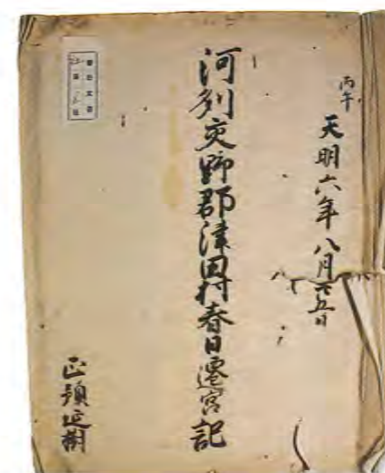 丙午
天明六年八月廿五日
河刕交野郡津田村春日遷宮記
正預延樹